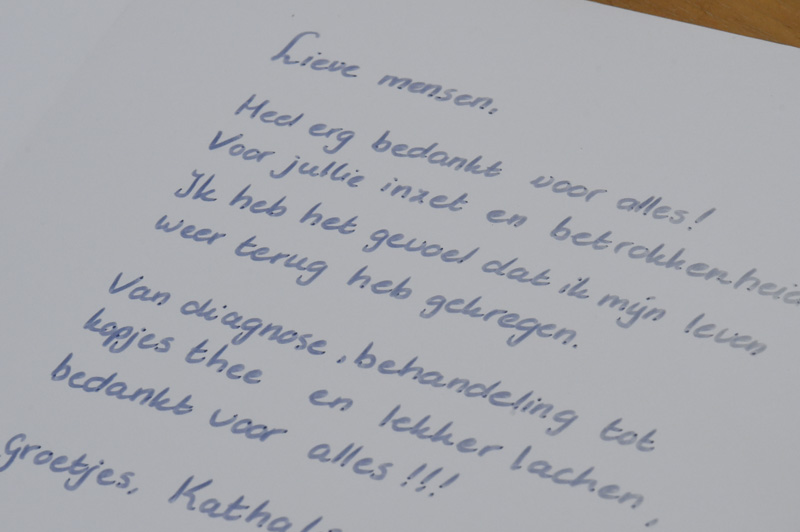 Lieve mensen,
Heel erg bedankt voor alles!
Voor jullie inzet en betrokkenheid
Ik heb het gevoel dat ik mijn leven
weer terug heb gekregen.
Van diagnose, behandeling tot
kopjes thee en lekker lachen,
bedankt voor alles!!!
Groetjes,